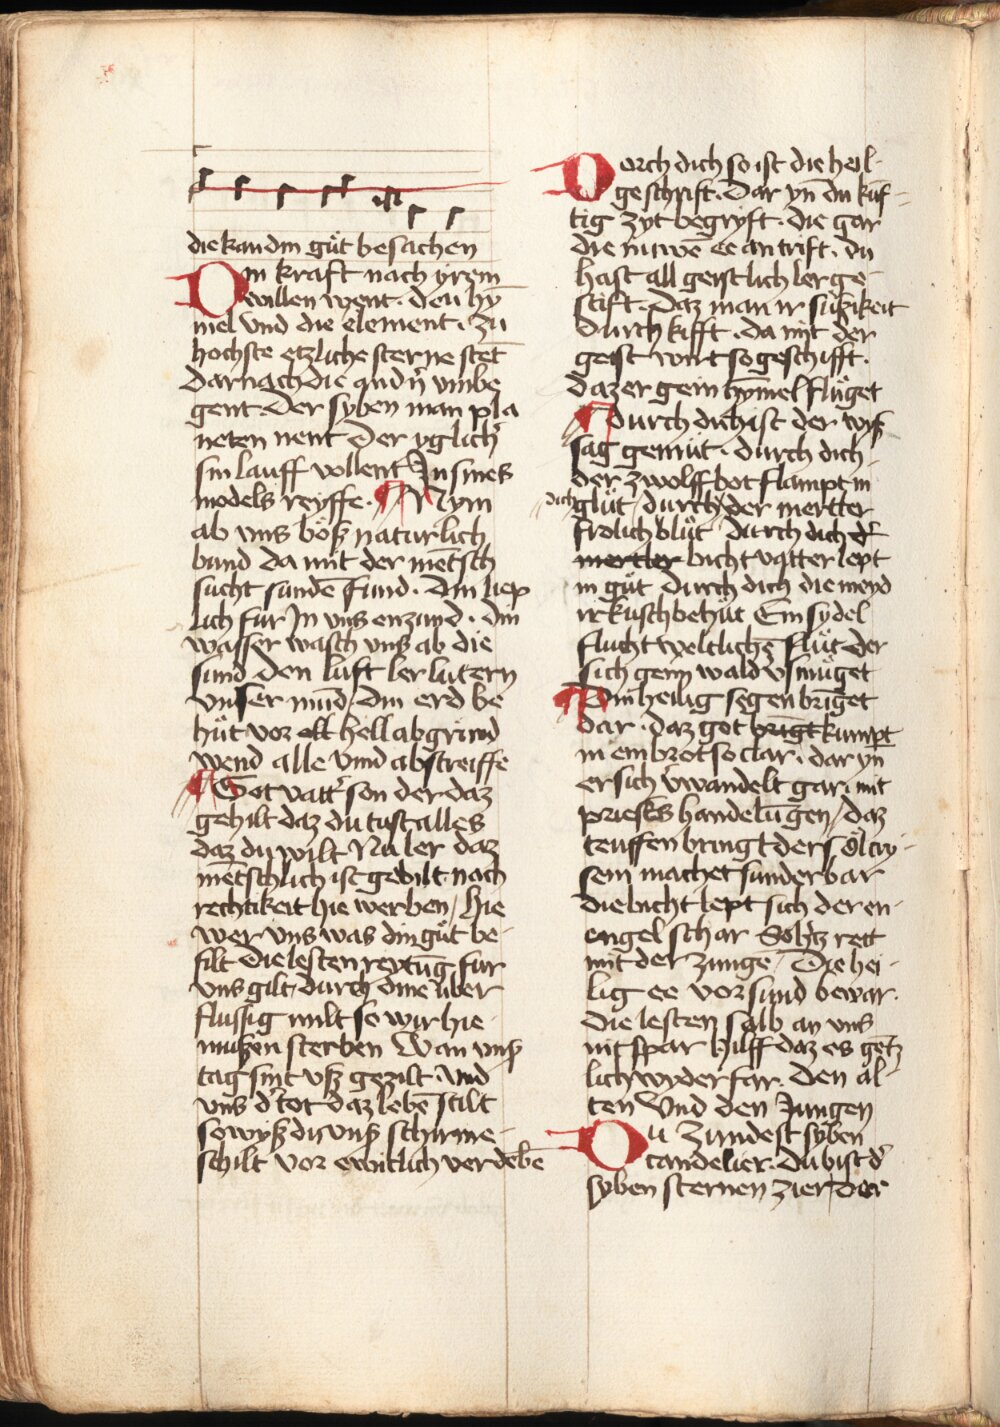 die kan din guͤt besachen
Din kraft nach yrem
willen went · den hy̅
mel vnd die element · zu
hochste etzliche sterne stet
darnach die andn̄ vmbe
gent · Der syben man pla
neten nent Der yglich
sin lauff vollent In sines
models reyffe · Nym
ab vns boͤß naturlich
bund da mit der me̅tsch
sucht sunde̅ fund · Din liep
lich fur In vns enzund · din
wasser wasch vnß ab die
sund den luft ler lutern
vnser mu̅d din erd be
huͤt vor ell hell abgrund
wend alle vnd abstreiffe
Got vattr̄ son der daz
gehilt daz du tust alles
daz du wilt Na ler daz
me̅tschlich ist gebilt nach
rechtikeit hie werben / hie
wer vns was din guͤt be-
filt Die lesten reytu̅g fur
vns gilt / durch dine uber
flussig milt so wir hie
mußen sterben Wan vnß
tag sint vß gezilt · vnd
vns d̄ tot daz lebe̅ stilt
so wyß du vnß schirme-
schilt vor ewitlich verdebe̅
Dorch dich so ist die heil-
geschrift · Dar yn din kuf-
tig zyt begryft · die gar
die nuwe̅ ee an trift · du
hast all geistlich ler ge-
stift · Daz man ir suzikeit
durch kifft · da mit der
geist wirt so geschifft ·
daz er gein hy̅mel fluͤget
durch dich ist der wiß
sag gemuͤt · durch dich
der zwolffbot flampt in
dich gluͤt / durch der mertter
frolich bluͤt durch dich d̄
mertler bichtvatter lept
in guͤt durch dich die meyd
ir kusch behuͤt Ein sydel
flucht weltliche̅ fluͤt der
sich gein wald vs muͤget
Din heilig segen bri̅get
dar · daz got brigt kumpt
in ein brot so clar · dar yn
er sich v̄wandelt gar · mit
priesters handelu̅gen / daz
teuffen bringt der sel cry-
sem machet sunderbar
die bicht lept sich der en-
engel schar Sold̄z rett
mit der zunge̅ / Die hei-
lig ee vor sund bewar ·
die lesten salb an vns
nit spar hilff daz es ge̅tz
lich wyder far · den al-
ten Vnd den Jungen
Du zundest syben
candelier · du bist d̄
syben sternen zier / der